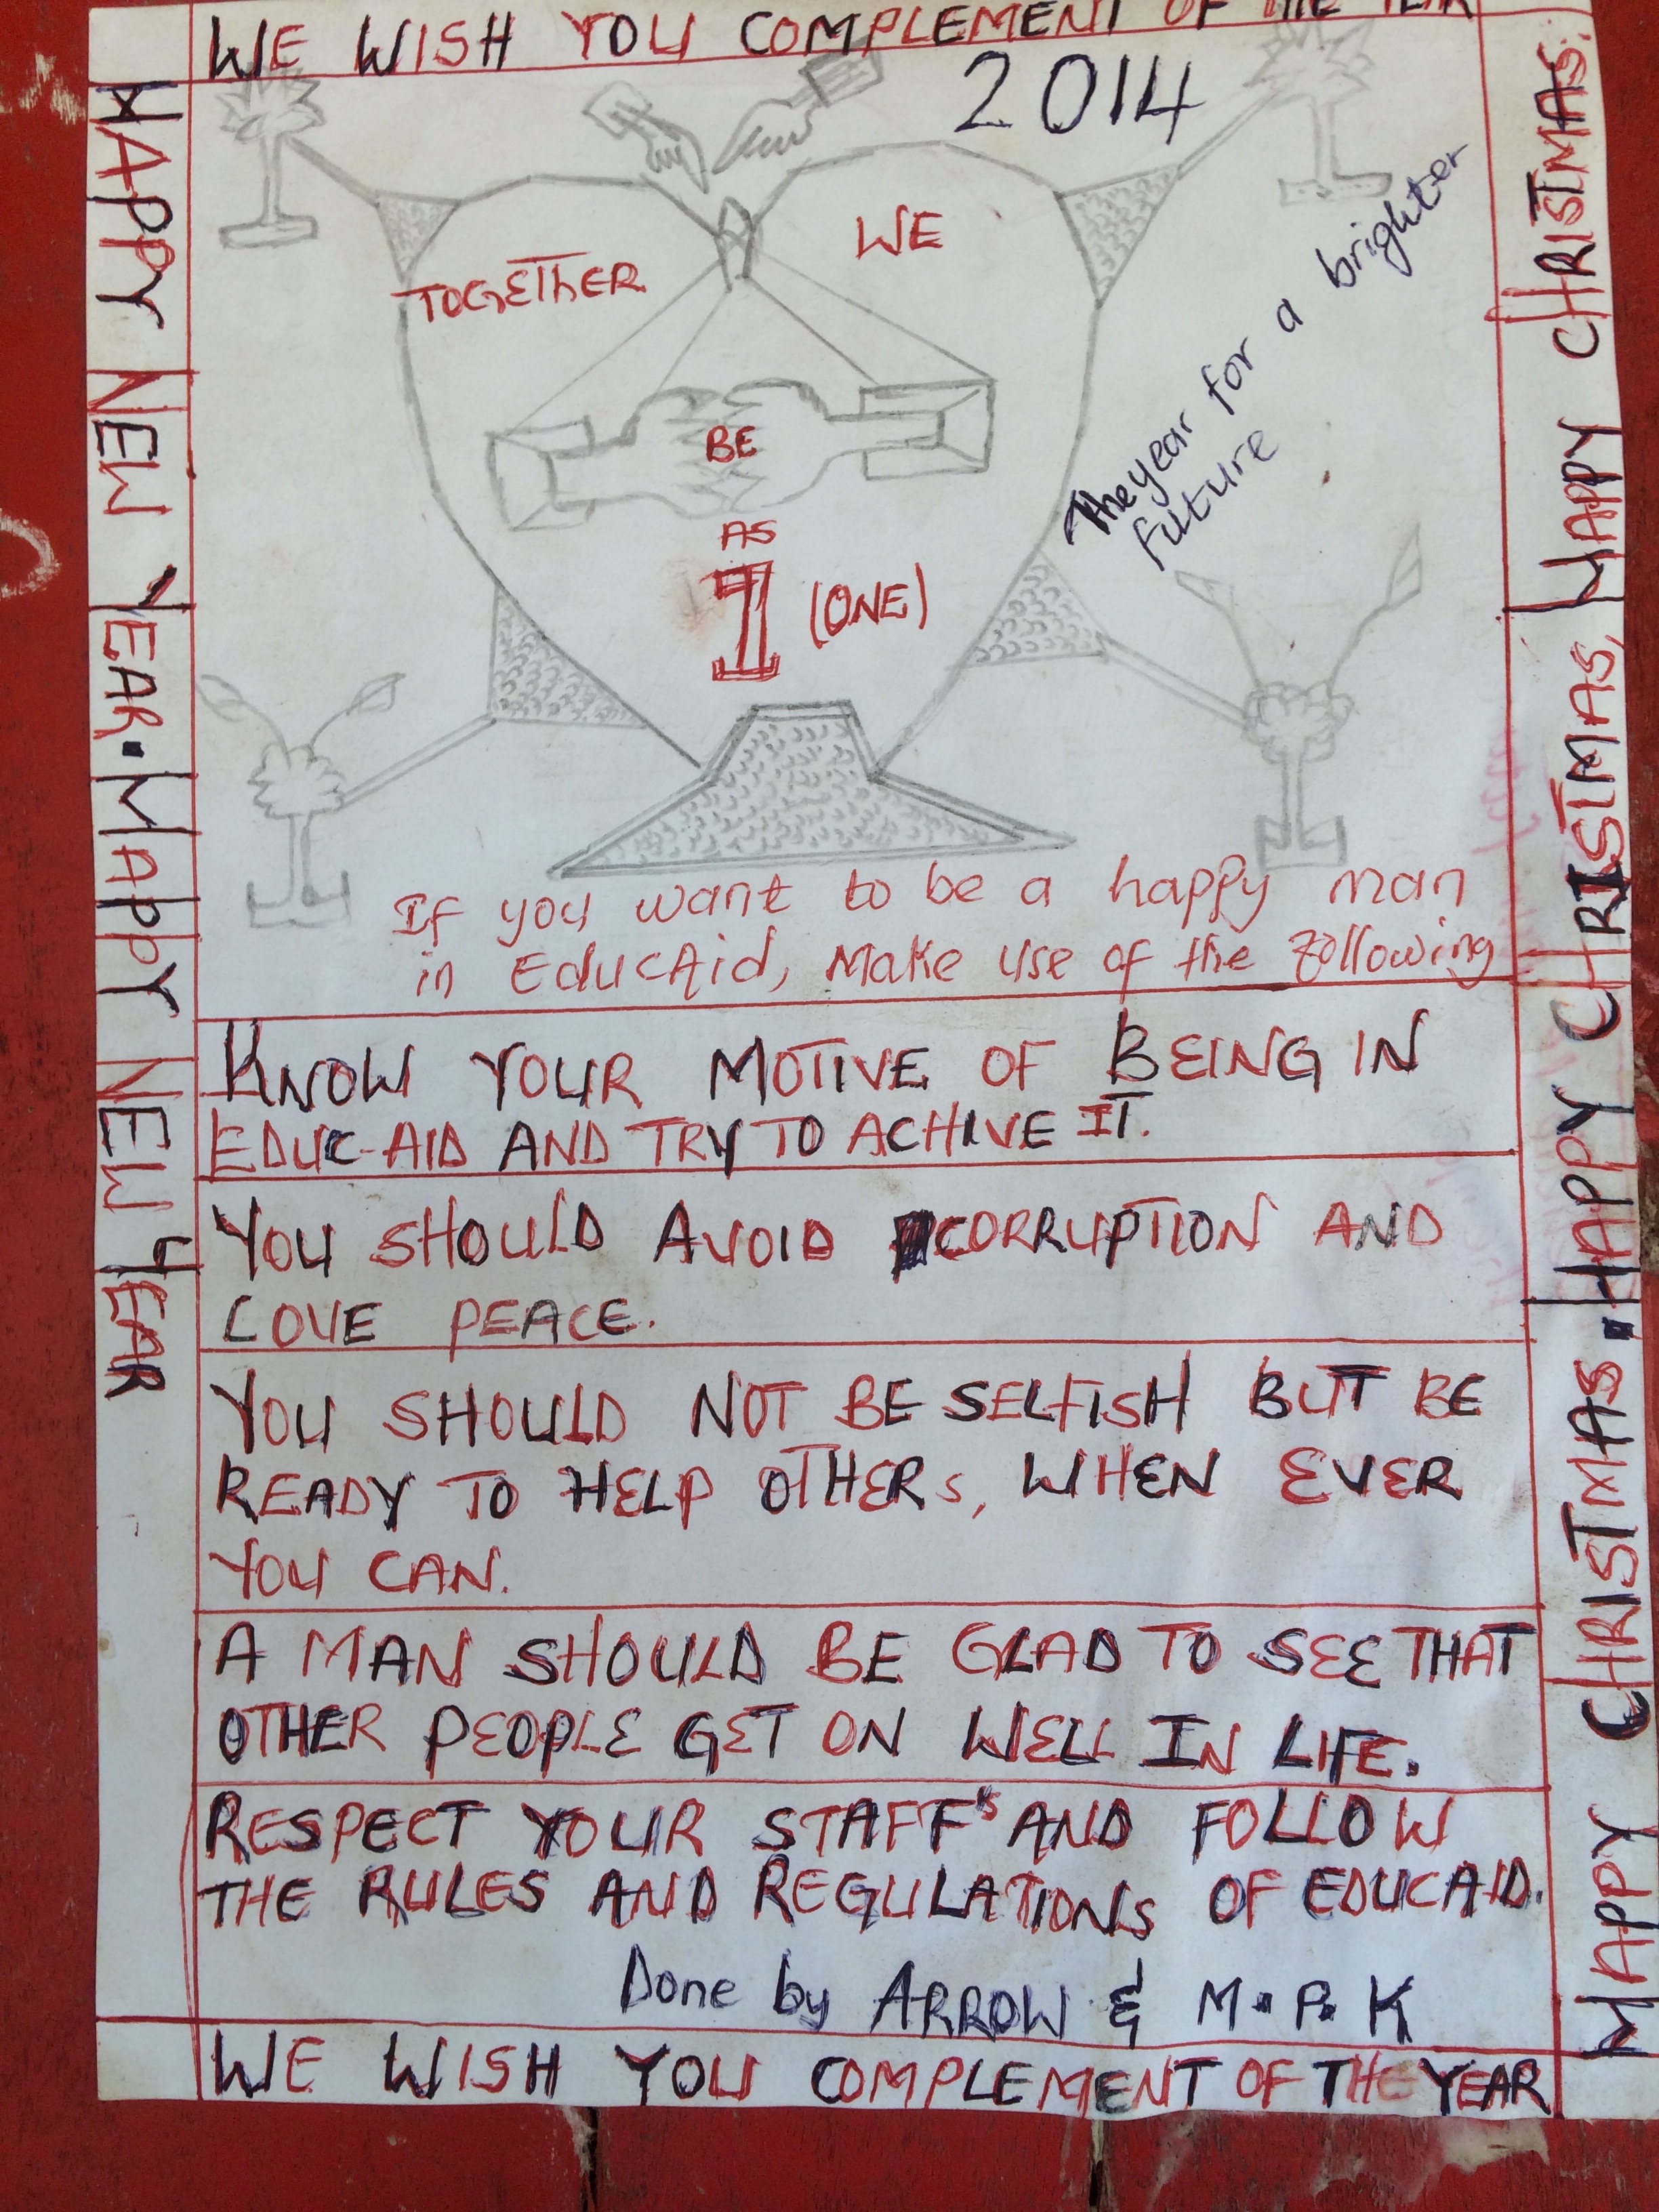 WE WISH YOU COMPLEMENT OF THE YEAR
2014
HAPPY NEW YEAR. HAPPY NEW YEAR
HAPPY CHRISTMAS. HAPPY CHRISTMAS, HAPPY CHRISTMAS.
TOGETHER
WE
BE
AS
1 (ONE)
The year for a brighter
future
If you want to be a happy man
in EducAid, Make use of the following
KNOW YOUR MOTIVE OF BEING IN
EDUC-AID AND TRY TO ACHIVE IT.
YOU SHOULD AVOID CORRUPTION AND
LOVE PEACE.
YOU SHOULD NOT BE SELFISH BUT BE
READY TO HELP OTHERS, WHEN EVER
YOU CAN.
A MAN SHOULD BE GLAD TO SEE THAT
OTHER PEOPLE GET ON WELL IN LIFE.
RESPECT YOUR STAFF's AND FOLLOW
THE RULES AND REGULATIONS OF EDUCAID.
Done by ARROW & M.P.K
WE WISH YOU COMPLEMENT OF THE YEAR